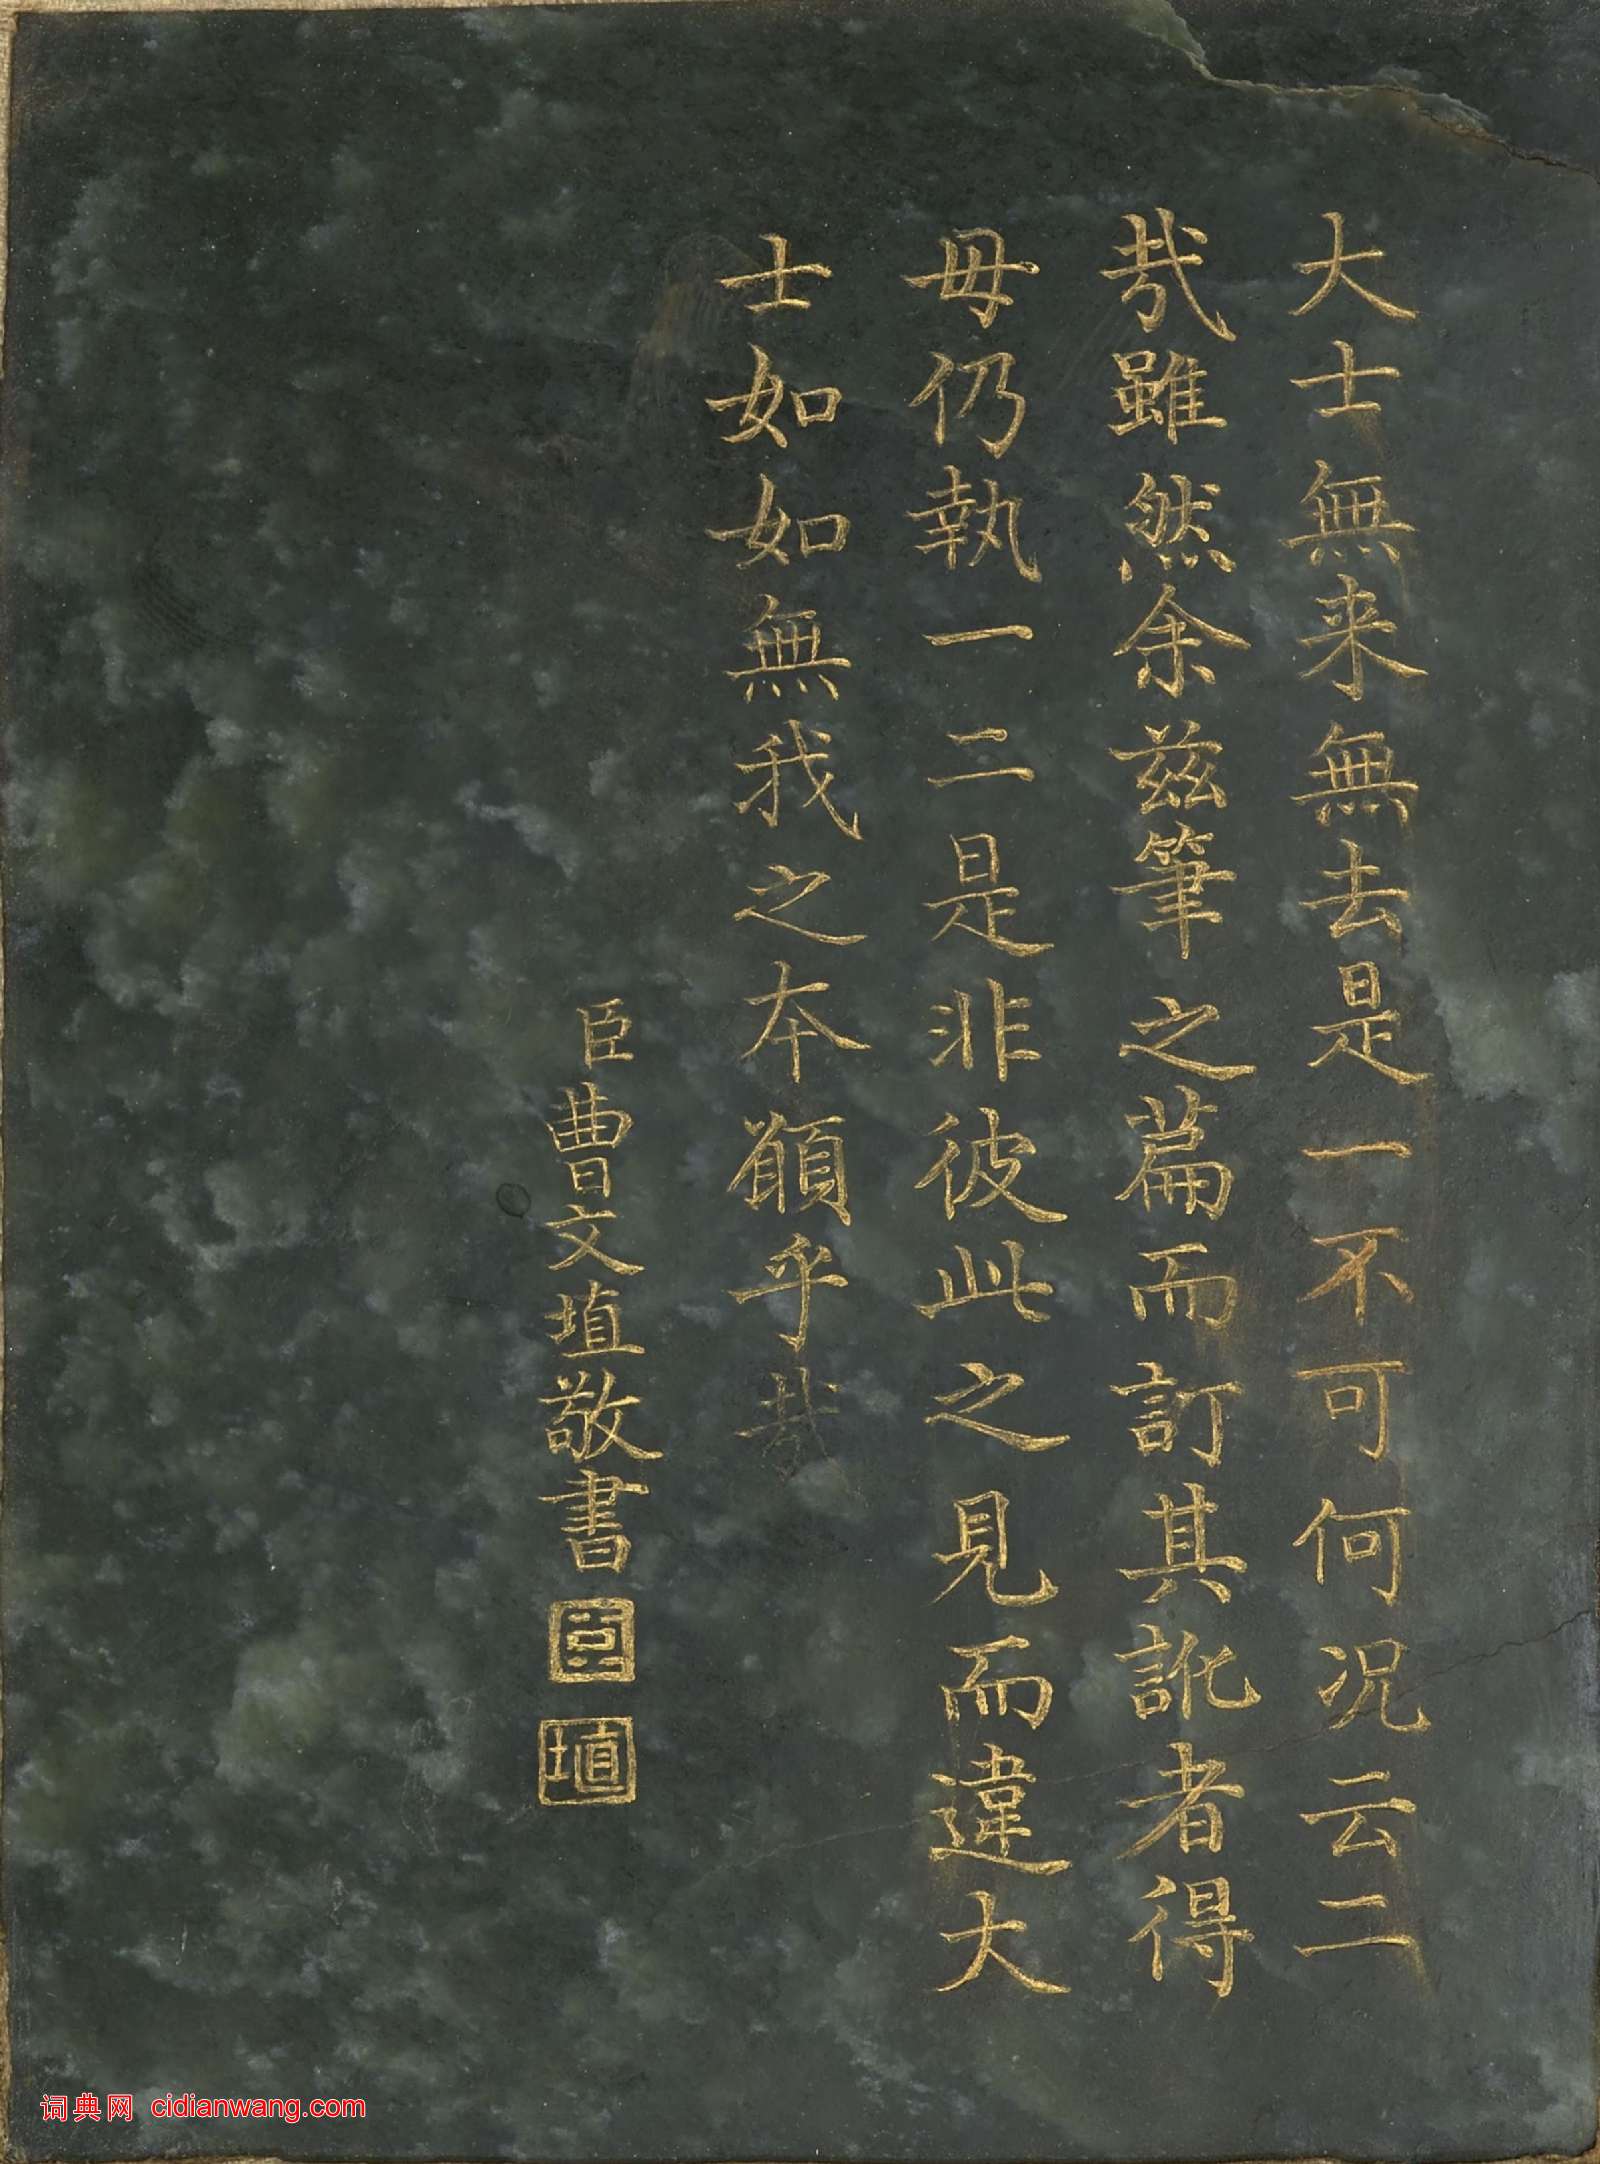 大士無来無去是一不可何况云二
哉雖然余兹筆之篇而訂其訛者得
毋仍執一二是非彼此之見而違大
士如如無我之本願乎哉
臣曹文埴敬書
臣
埴
词典网 cidianwang.com